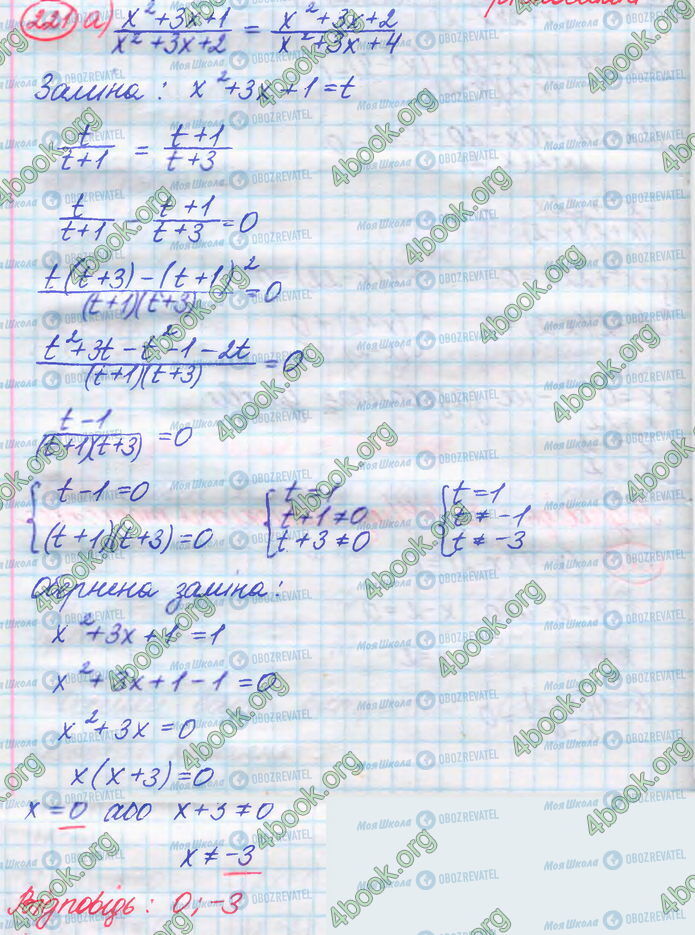 221 а) (x²+3x+1)/(x²+3x+2) = (x²+3x+2)/(x²+3x+4)
Заміна: x²+3x+1=t
t/(t+1) = (t+1)/(t+3)
t/(t+1) - (t+1)/(t+3) = 0
(t(t+3)-(t+1)²)/((t+1)(t+3)) = 0
(t²+3t-t²-1-2t)/((t+1)(t+3)) = 0
(t-1)/((t+1)(t+3)) = 0
{ t-1=0 { t=1 { t=1
t+1≠0 t≠-1
(t+1)(t+3)=0 t+3≠0 t≠-3
Обернена заміна:
x²+3x+1=1
x²+3x+1-1=0
x²+3x=0
x(x+3)=0
x=0 або x+3≠0
x≠-3
Відповідь: 0, -3
4book.org
Моя Школа OBOZREVATEL